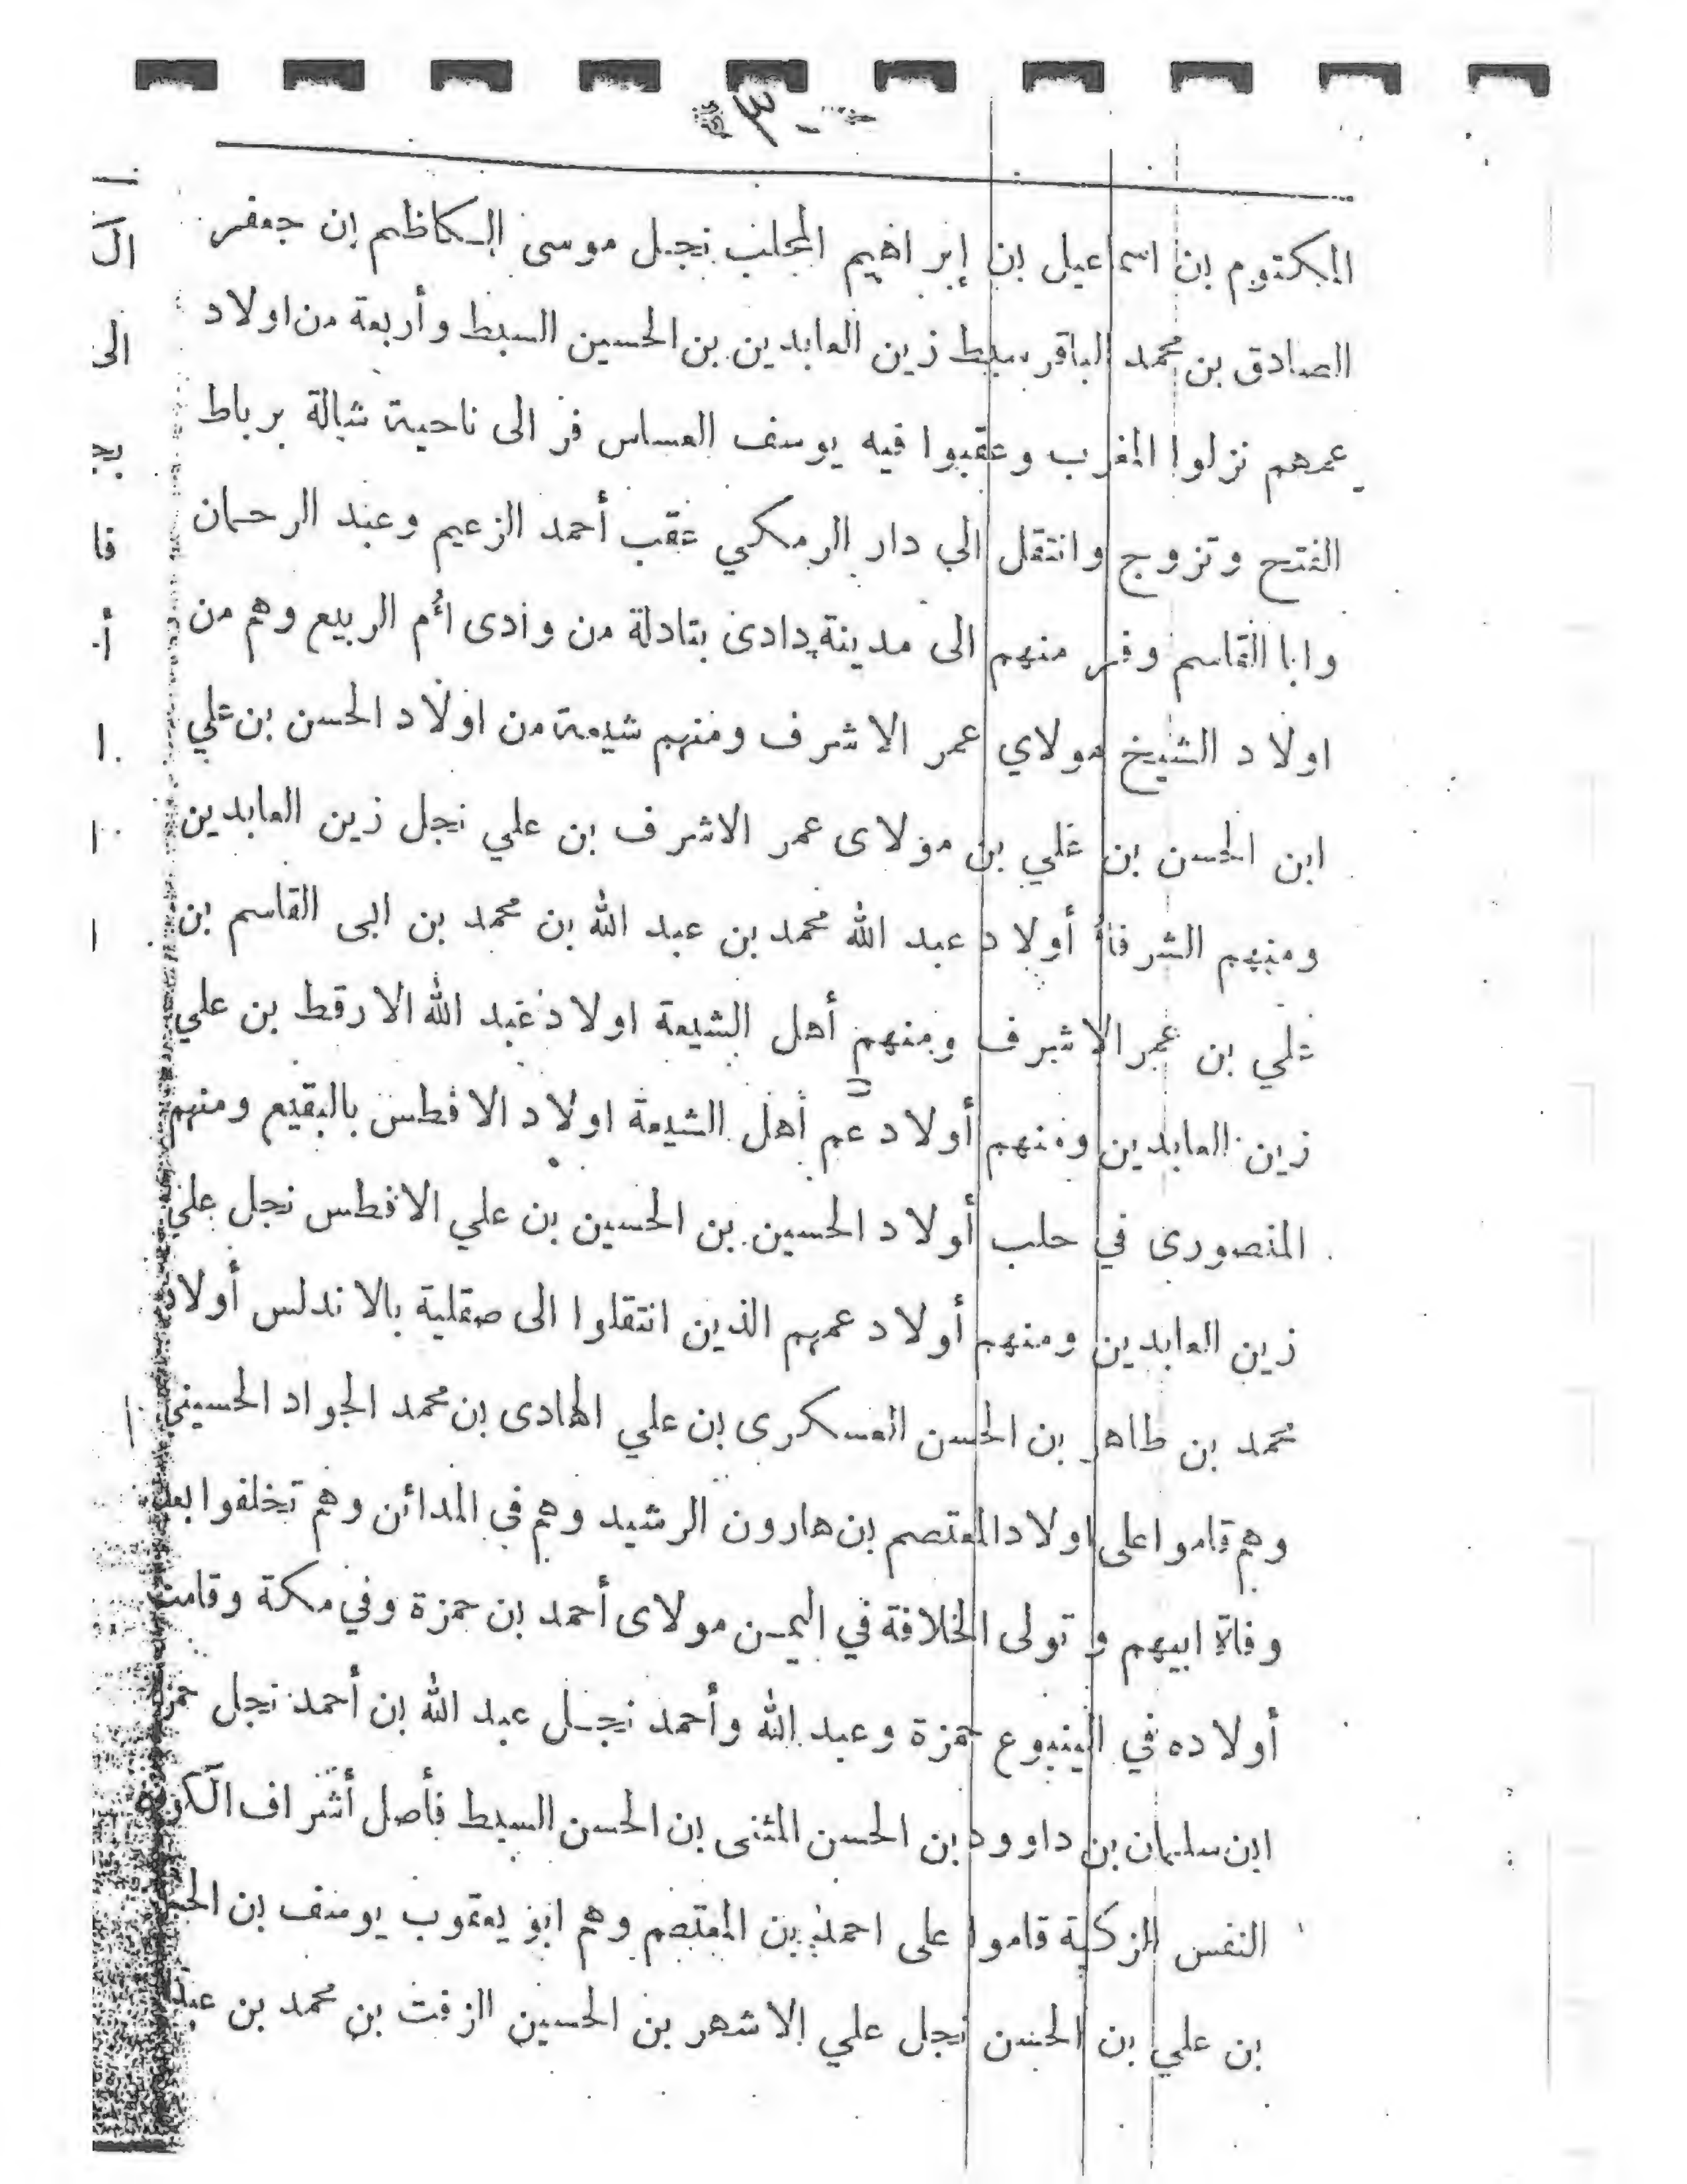 - ٣ -
المكتوم بن اسماعيل بن إبراهيم المجلب نجل موسى الكاظم إن جعفر
الصادق بن محمد الباقر سبط زين العابدين بن الحسين السبط وأربعة من اولاد
عمرهم نزلوا المغرب وعقبوا فيه يوسف العساس فر الى ناحية شالة برباط
الفتح وتزوج وانتقل الى دار الرمكي عقب أحمد الزعيم وعبد الرحمان
وابا القاسم وفر منهم الى مدينة دادى بتادلة من وادى أم الربيع وهم من
اولاد الشيخ مولاي عمر الاشرف ومنهم شيعة من اولاد الحسن بن علي
ابن الحسن بن علي بن مولاى عمر الاشرف بن علي نجل زين العابدين
ومنهم الشرفاء أولاد عبد الله محمد بن عبد الله بن محمد بن ابى القاسم بن
علي بن عمر الاشرف ومنهم أهل الشيعة اولاد عبد الله الارقط بن علي
زين العابدين ومنهم أولاد عم أهل الشيعة اولاد الافطس بالبقيع ومنهم
المنصورى في حلب أولاد الحسين بن الحسين بن علي الافطس نجل علي
زين العابدين ومنهم أولاد عمهم الذين انتقلوا الى صقلية بالاندلس أولاد
محمد بن طاهر بن الحسن العسكرى بن علي الهادى بن محمد الجواد الحسيني
وهم قاموا على اولاد المعتصم بن هارون الرشيد وهم في المدائن وهم تخلفوا بعد
وفاة ابيهم و تولى الخلافة في اليمن مولاى أحمد بن حمزة وفي مكة وقامت
أولاده في الينبوع حمزة وعبد الله وأحمد نجل عبد الله بن أحمد نجل
ابن سليمان بن داوود بن الحسن المثنى بن الحسن السبط فأصل أشراف
النفس الزكية قاموا على احمد بن المعتصم وهم ابو يعقوب يوسف بن
بن علي بن الحسن نجل علي الاشهر بن الحسين الزفت بن محمد بن عبد